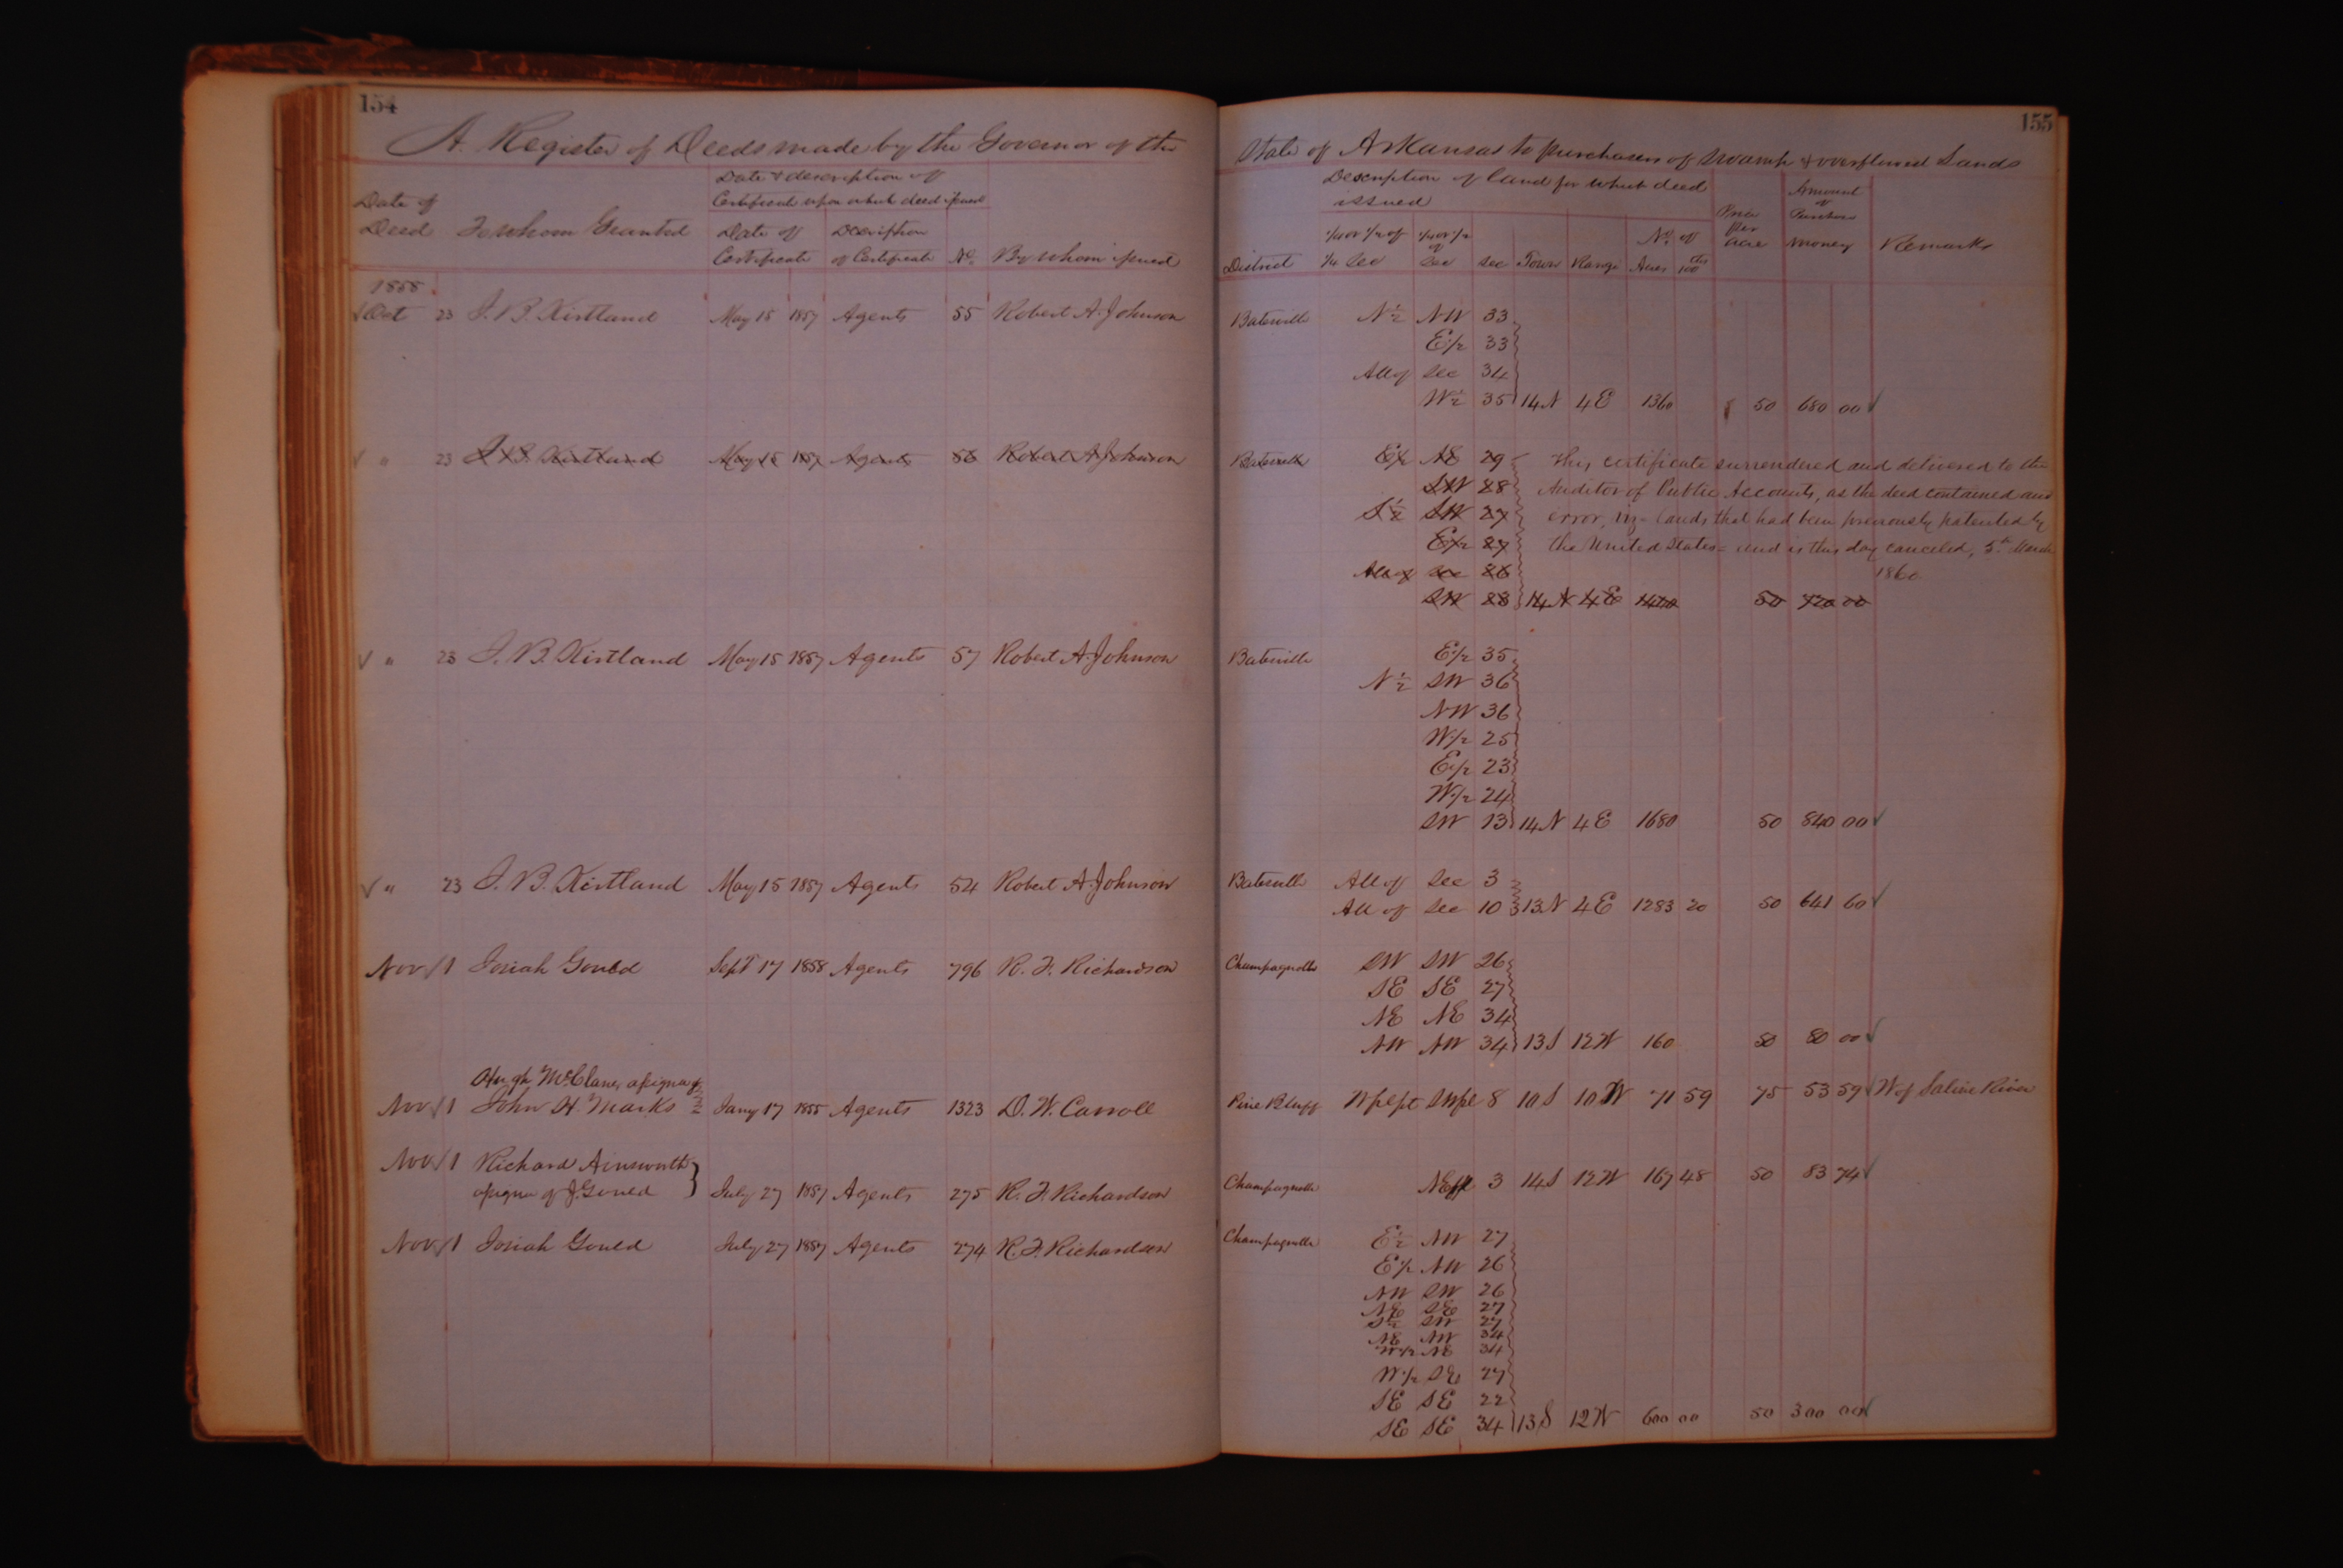 154
A. Register of Deeds made by the Governor of the
Date of Deed
To whom Granted
Date & description of Certificate upon which deed issued
Date of Certificate
Description of Certificate
No.
By whom issued
1858
Oct 23 J. B. Kirtland May 15 1857 Agents 55 Robert A. Johnson
" 23 J. B. Kirtland May 15 1857 Agents 56 Robert A. Johnson
" 23 J. B. Kirtland May 15 1857 Agents 57 Robert A. Johnson
" 23 J. B. Kirtland May 15 1857 Agents 54 Robert A. Johnson
Nov 1 Josiah Gould Sept 17 1858 Agents 796 R. F. Richardson
Hugh McClane, assignee of
Nov 1 John H. Marks Jany 17 1855 Agents 1323 D. W. Carroll
Nov 1 Richard Ainsworth
assignee of J. Gould } July 27 1857 Agents 275 R. F. Richardson
Nov 1 Josiah Gould July 27 1857 Agents 274 R. F. Richardson
155
State of Arkansas to purchasers of swamp & overflowed Lands
Description of land for which deed issued
District
1/4 or 1/2 of 1/4 Sec
1/4 or 1/2 of Sec
Sec
Town
Range
No. of Acres 100ths
Price per acre
Amount of Purchase money
Remarks
Batesville N 1/2 NW 33
E 1/2 33
All of Sec 34
W 1/2 35 14N 4E 1360 50 680 00
Batesville E 1/2 NE 29 This certificate surrendered and delivered to the
SW 28 Auditor of Public Accounts, as the deed contained an
S 1/2 SW 27 error, viz - lands that had been previously patented by
E 1/2 27 the United States = and is this day canceled, 5th March
All of Sec 26 1860.
SW 23 14N 4E 1440 50 720 00
Batesville E 1/2 35
N 1/2 SW 36
NW 36
W 1/2 25
E 1/2 23
W 1/2 24
SW 13 14N 4E 1680 50 840 00
Batesville All of Sec 3
All of Sec 10 13N 4E 1283 20 50 641 60
Champagnolle SW SW 26
SE SE 27
NE NE 34
NW NW 34 13S 12W 160 50 80 00
Pine Bluff 8 10S 10W 71 59 75 53 59 W of Saline River
Champagnolle 3 14S 12W 167 48 50 83 74
Champagnolle E 1/2 NW 27
E 1/2 NW 26
NW SW 26
NE SE 27
S 1/2 SW 27
NE NW 34
W 1/2 NE 34
W 1/2 SE 27
SE SE 22
SE SE 34 13S 12W 600 00 50 300 00